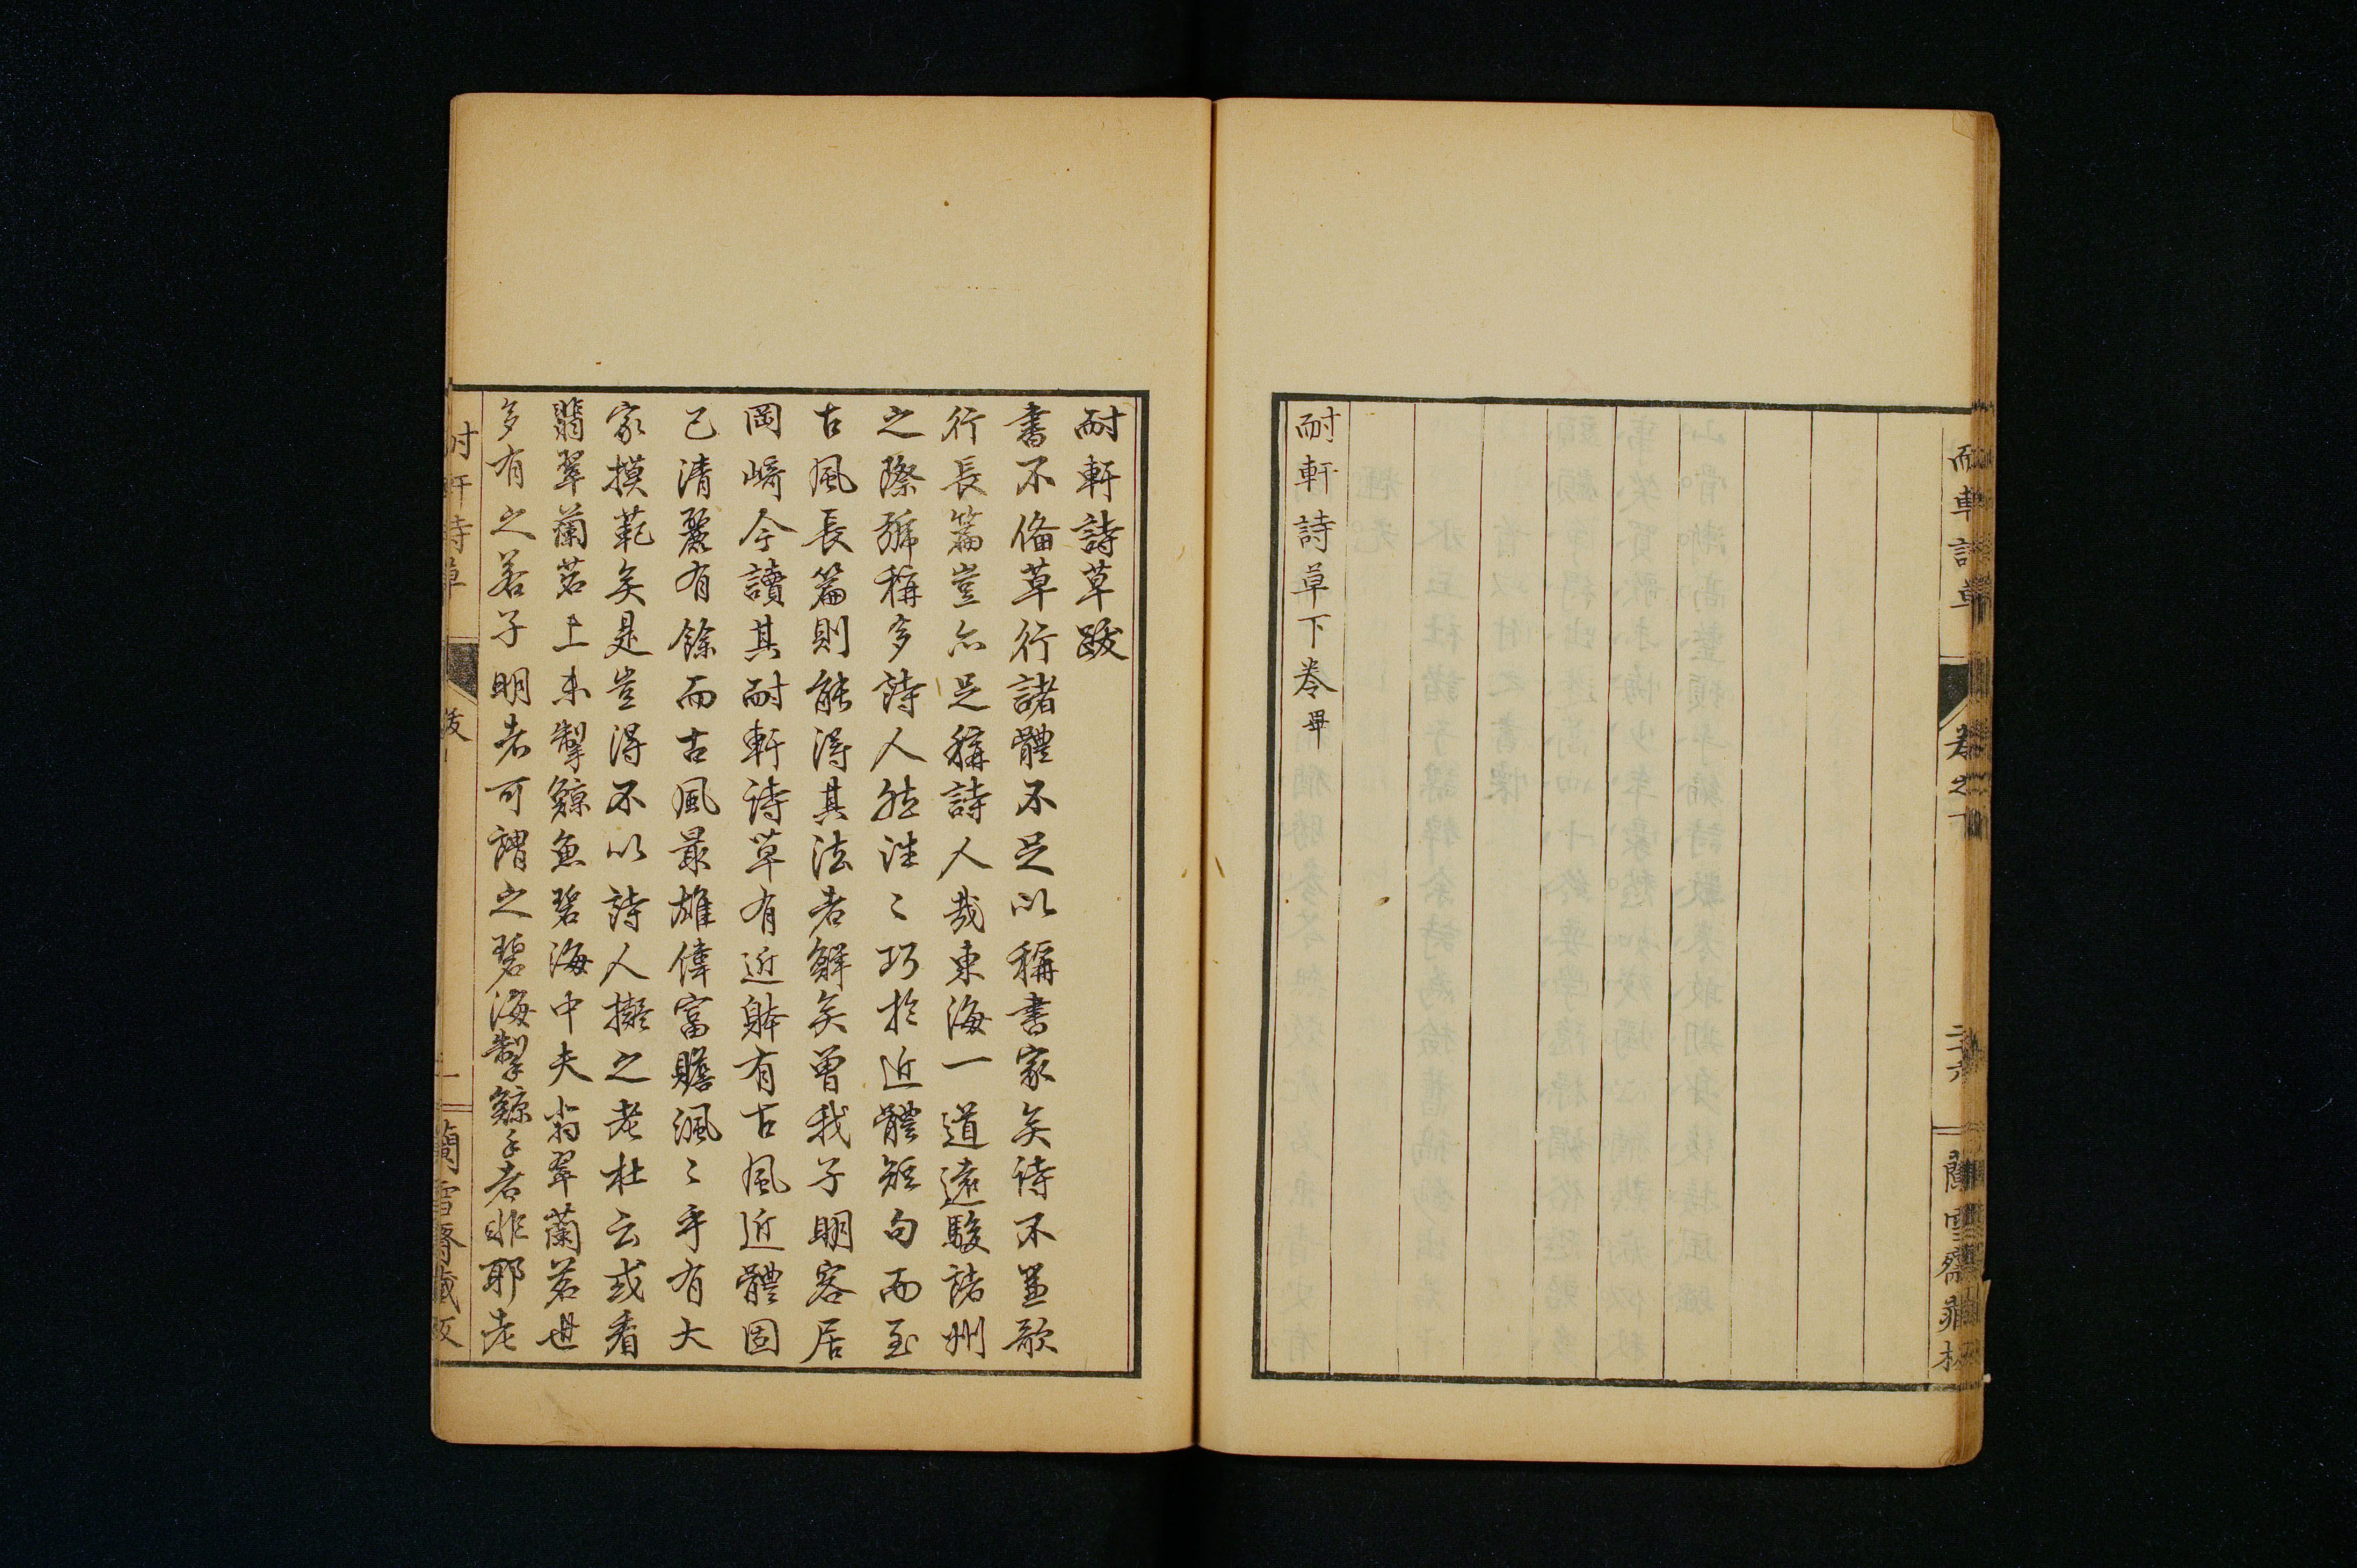 耐軒詩草下巻畢
耐軒詩草跋
書不備草行諸體不足以稱書家矣詩不並歌
行長篇豈亦足稱詩人哉東海一道遠駿諸州
之際號稱多詩人然往〻巧於近體短句而至
古風長篇則能得其法者鮮矣曾我子明客居
岡崎今讀其耐軒詩草有近躰有古風近體固
已清麗有餘而古風最雄偉富贍渢〻乎有大
家摸範矣是豈得不以詩人擬之老杜云或看
翡翠蘭苕上未掣鯨魚碧海中夫翡翠蘭苕世
多有之若子明者可謂之碧海掣鯨手者非耶老
耐軒詩草
跋
一
蘭雪齋藏板